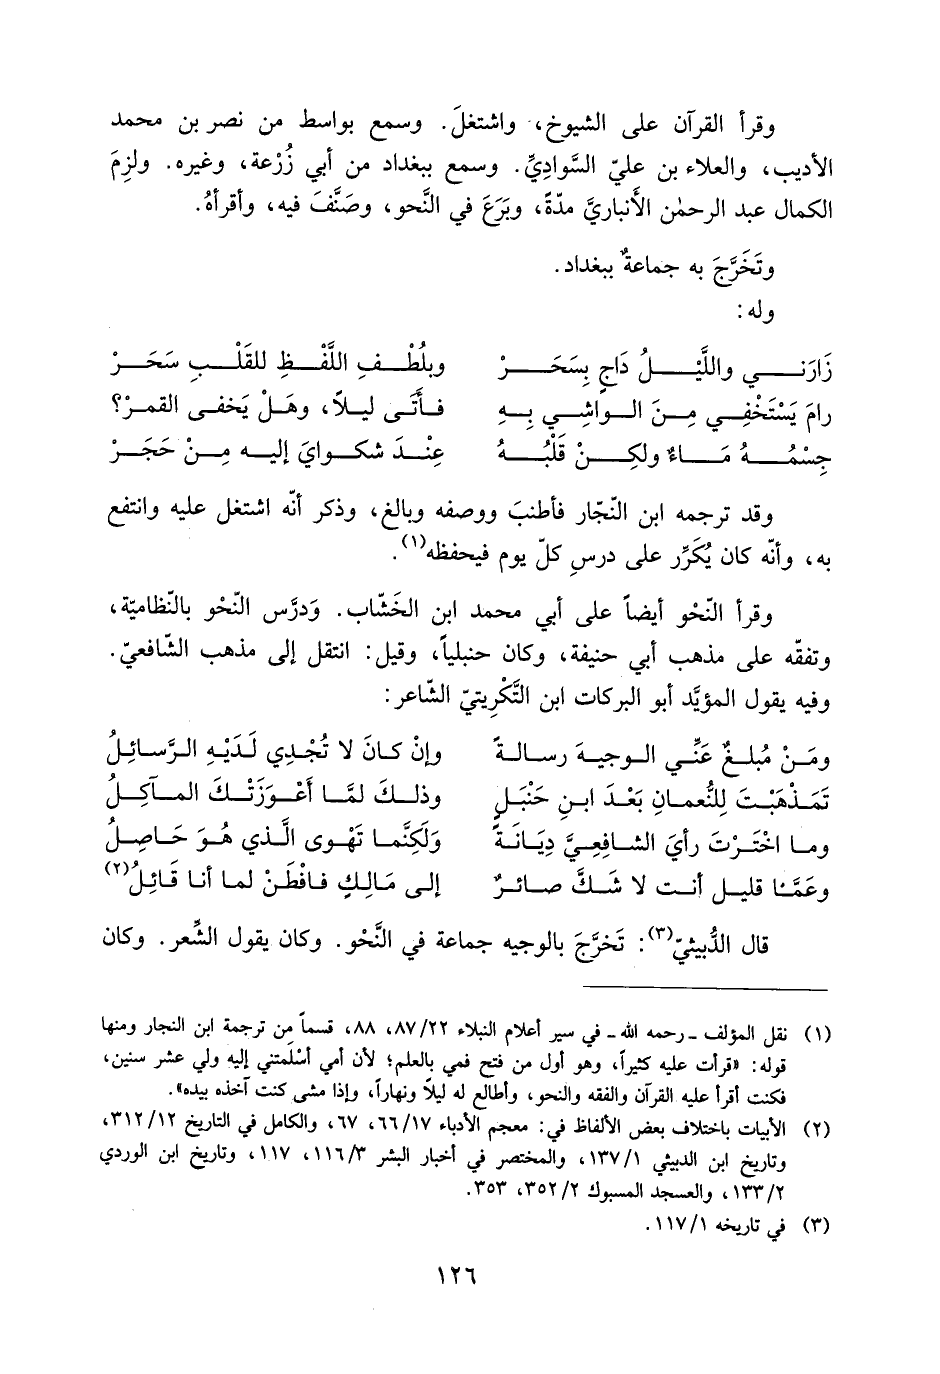 وقرأ القرآن على الشيوخ، واشتغلَ. وسمع بواسط من نصر بن محمد
الأديب، والعلاء بن عليّ السَّوادِيِّ. وسمع ببغداد من أبي زُرْعة، وغيره. ولزِمَ
الكمال عبد الرحمٰن الأَنباريَّ مدّةً، وبَرَعَ في النَّحو، وصَنَّفَ فيه، وأقرأهُ.
وتَخَرَّجَ به جماعةٌ ببغداد.
وله:
زَارَنــي والليْــلُ دَاجٍ بِسَحَــرْ وبلُطْــفِ اللَّفْــظِ للقَلْــبِ سَحَــرْ
رامَ يَسْتَخْفِــي مِــنَ الــواشِــي بِــهِ فــأَتَــى ليــلاً، وهَــلْ يَخفــى القمــرْ؟
جِسْمُــهُ مَــاءٌ ولكِــنْ قَلْبُــهُ عِنْــدَ شكــوايَ إليــه مِــنْ حَجَــرْ
وقد ترجمه ابن النّجّار فأطنبَ ووصفه وبالغ، وذكر أنّه اشتغل عليه وانتفع
به، وأنّه كان يُكَرِّر على درسِ كلّ يوم فيحفظه(١).
وقرأ النّحْو أيضاً على أبي محمد ابن الخَشّاب. وَدرَّس النّحْو بالنّظاميّة،
وتفقّه على مذهب أبي حنيفة، وكان حنبلياً، وقيل: انتقل إلى مذهب الشّافعيّ.
وفيه يقول المؤيَّد أبو البركات ابن التَّكْرِيتيّ الشّاعر:
ومَــنْ مُبلــغٌ عَنِّــي الــوجيــهَ رسالــةً وإنْ كــانَ لا تُجْــدِي لَــدَيْــهِ الــرَّســائِــلُ
تَمَــذْهَبْــتَ لِلنُّعمــانِ بَعْــدَ ابــنِ حَنْبَــلٍ وذلــكَ لمَّــا أَعْــوَزَتْــكَ المــآكِــلُ
ومــا اخْتَــرْتَ رأيَ الشــافِعِــيَّ دِيَــانَــةً وَلَكِنَّمــا تَهْــوى الَّــذي هُــوَ حَــاصِــلُ
وعَمَّــا قليــلٍ أنــت لا شَــكَّ صــائــرٌ إلى مَــالِــكٍ فــافْطَــنْ لمــا أنــا قَــائِــلُ(٢)
قال الدُّبيثيّ(٣): تَخرَّجَ بالوجيه جماعة في النَّحْو. وكان يقول الشِّعر. وكان
(١) نقل المؤلف ـ رحمه الله ـ في سير أعلام النبلاء ٨٧/٢٢، ٨٨، قسماً من ترجمة ابن النجار ومنها
قوله: «قرأت عليه كثيراً، وهو أول من فتح فمي بالعلم؛ لأن أمي أسْلَمَتني إليه ولي عشر سنين،
فكنت أقرأ عليه القرآن والفقه والنحو، وأطالع له ليلاً ونهاراً، وإذا مشى كنت آخذه بيده».
(٢) الأبيات باختلاف بعض الألفاظ في: معجم الأدباء ٦٦/١٧، ٦٧، والكامل في التاريخ ٣١٢/١٢،
وتاريخ ابن الدبيثي ١٣٧/١، والمختصر في أخبار البشر ١١٦/٣، ١١٧، وتاريخ ابن الوردي
١٣٣/٢، والعسجد المسبوك ٣٥٢/٢، ٣٥٣.
(٣) في تاريخه ١١٧/١.
١٢٦